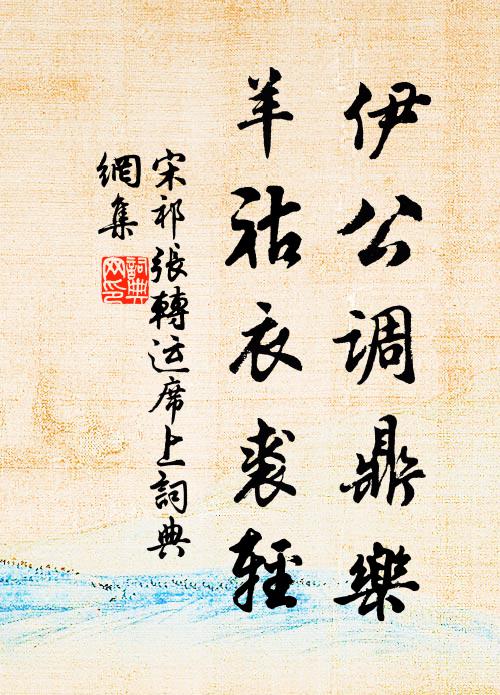 伊公调鼎樂
羊祜衣裘輕
宋祁張轉运席上詞典
網集
詞典
网印